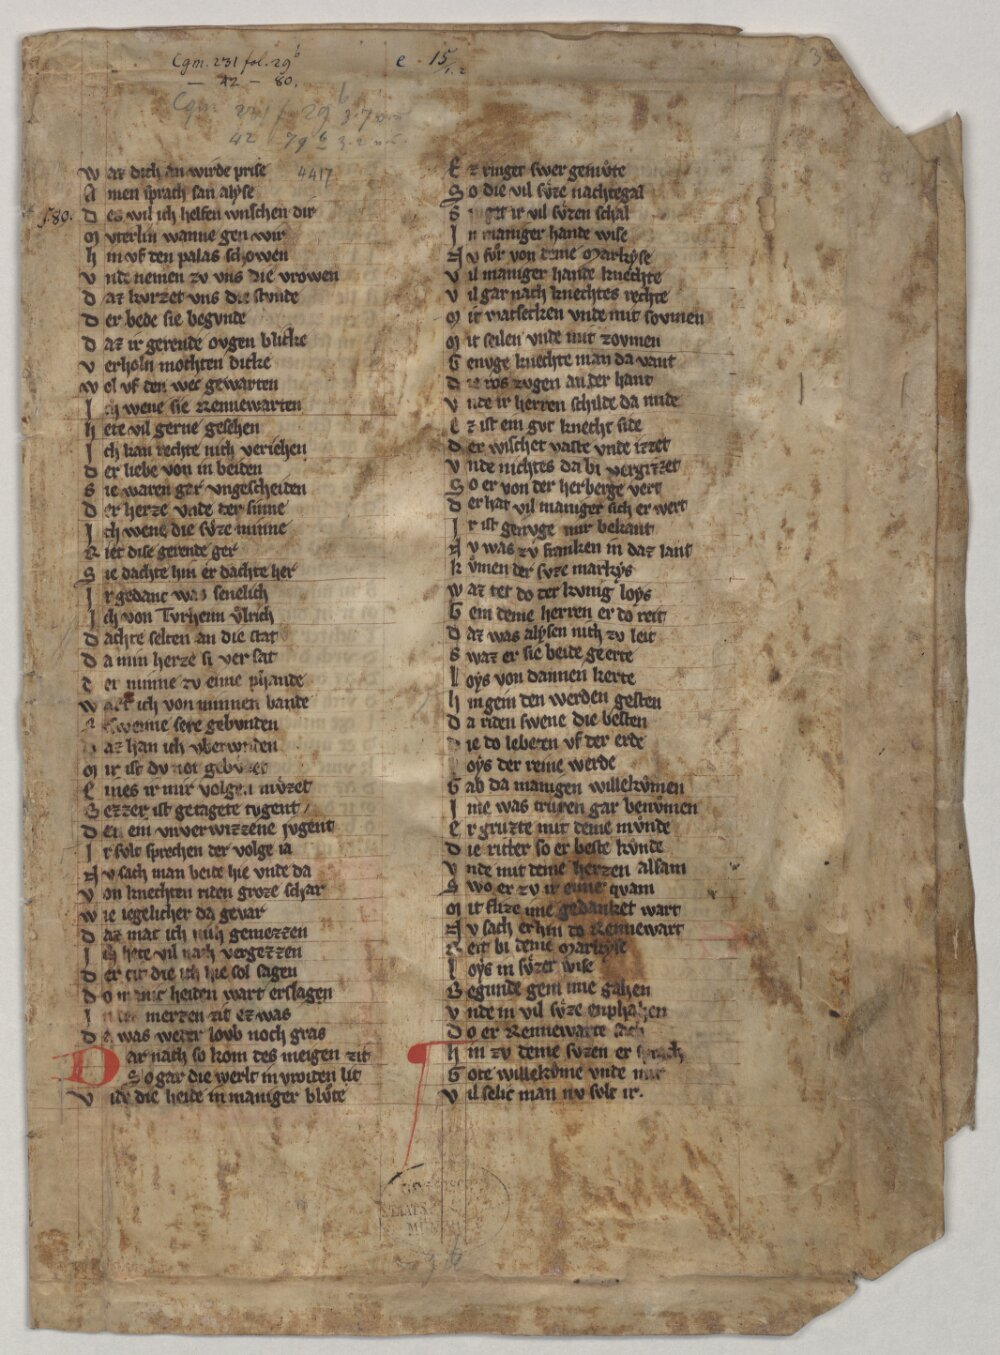 Cgm. 231 fol. 29b
— 42 — 80.
e. 15
3
Cgm 231 f 29b
42 79b
4417
f 80.
W az dich an wirde prise
A men sprach san alyse
D es wil ich helfen wnschen dir
M vterlin wanne gen wir
H in vf den palas schowen
V nde nemen zv vns die vrowen
D az kvrzet vns die stvnde
D er bede sie begvnde
D az ir gerende ovgen blicke
V erholn mochten dicke
W ol vf den wec gewarten
I ch wene sie Rennewarten
H ete vil gerne gesehen
I ch kan rechte nich veriehen
D er liebe von in beiden
S ie waren gar vngescheiden
D er herze vnde der sinne
I ch wene die svze minne
R iet dise gerende ger
S ie dachte hin er dachte her
I r gedanc waz senelich
I ch von Tvrheim vlrich
D achte selten an die stat
D a min herze si ver sat
D er minne zv eime phande
W ich von minnen bande
wenne sere gebvnden
az han ich vberwnden
M ir ist dv not gebvzet
E nies ir mir volgen mvzet
B ezzer ist getagete tvgent
D en ein vnverwizzene jvgent
I r solt sprechen der volge ia
N v sach man beide hie vnde da
V on knechten riden groze schar
W ie iegelicher da gevar
D az mac ich nih gemezzen
I ch hete vil nach vergezzen
D er tit die ich hie sol sagen
D o manic heiden wart erslagen
I n merzen zit ez was
D a was weder lovb noch gras
D ar nach so kom des meigen zit
So gar die werlt in vroiden lit
V nde die heide in maniger blvte
E z ringet swer gemvte
S o die vil svze nachtegal
S inget ir vil svzen schal
I n maniger hande wise
N v fvr von deme Markyse
V il maniger hande knechte
V il gar nach knechtes rechte
M it watsecken vnde mit sovmen
M it seilen vnde mit zovmen
G envge knechte man da vant
D ie ros zvgen an der hant
V nde ir herren schilde da mide
E z ist ein gvt knecht side
D er wischet vaste vnde izzet
V nde nichtes da bi vergizzet
S o er von der herberge vert
D er hat vil maniger sich er wert
I r ist genvge mir bekant
N v was zv franken in daz lant
K vmen der svze markys
W az tet do der kvnig loys
G ein deme herren er do reit
D az was alysen nich zv leit
S waz er sie beide geerte
L oys von dannen kerte
H in gein den werden gesten
D a riden swene die besten
D ie do lebeten vf der erde
L oys der reine werde
G ab da manigen willekvmen
I me was trvren gar benvmen
E r grvzte mit deme mvnde
D ie ritter so er beste kvnde
V nde mit deme herzen allsam
S wo er zv ir eime qvam
M it flize ime gedanket wart
N v sach er hin do Rennewart
R eit bi deme Markyse
L oys in svzer wise
B egvnde gein ime gahen
V nde in vil svze enphahen
D o er Rennewarte sach
H in zv deme svzen er sprach
G ote willekvme vnde mir
V il selic man nv solt ir.
STAATS
MÜN